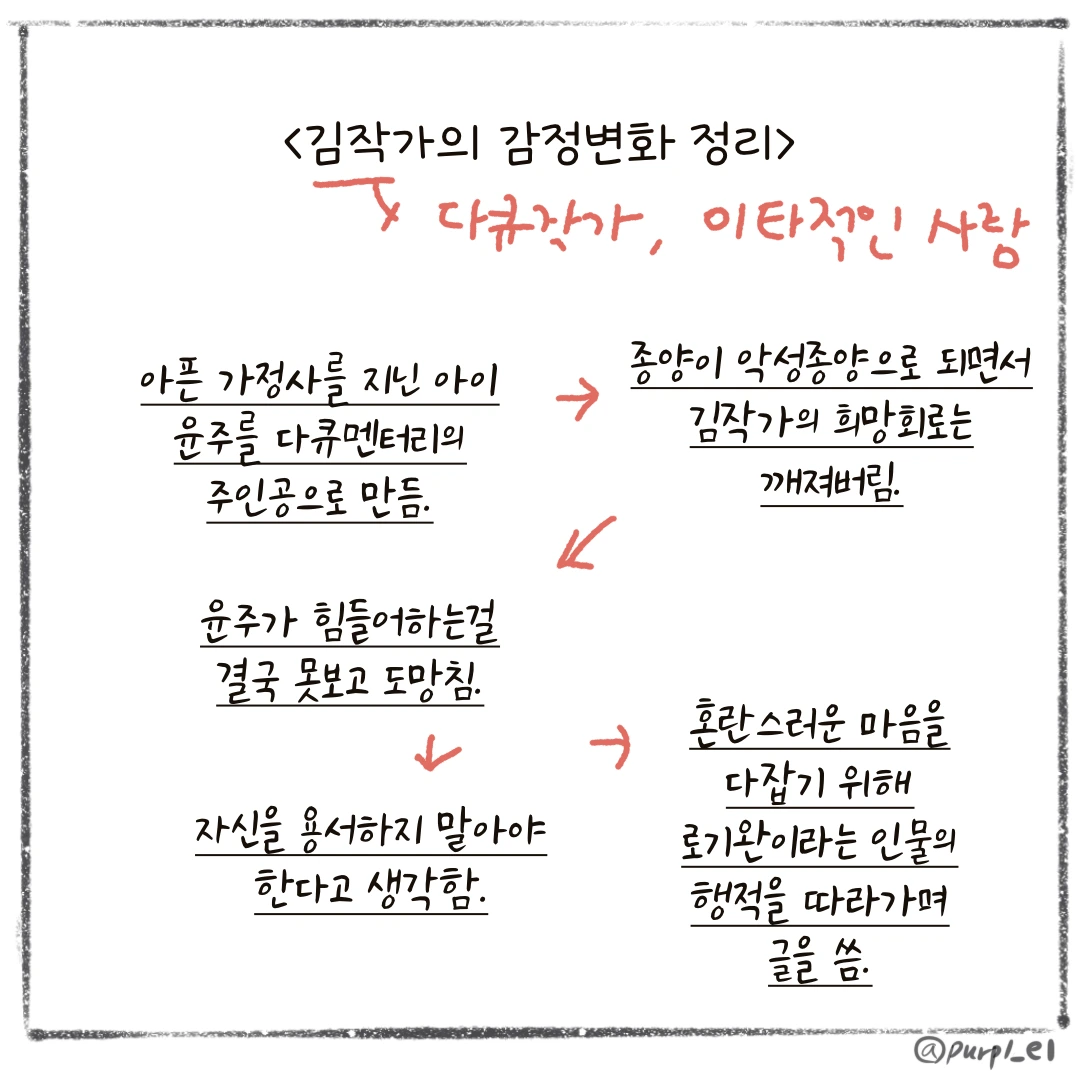 <김작가의 감정변화 정리>
다큐작가, 이타적인 사람
아픈 가정사를 지닌 아이
윤주를 다큐멘터리의
주인공으로 만듬.
종양이 악성종양으로 되면서
김작가의 희망회로는
깨져버림.
윤주가 힘들어하는걸
결국 못보고 도망침.
자신을 용서하지 말아야
한다고 생각함.
혼란스러운 마음을
다잡기 위해
로기완이라는 인물의
행적을 따라가며
글을 씀.
@purpl_el